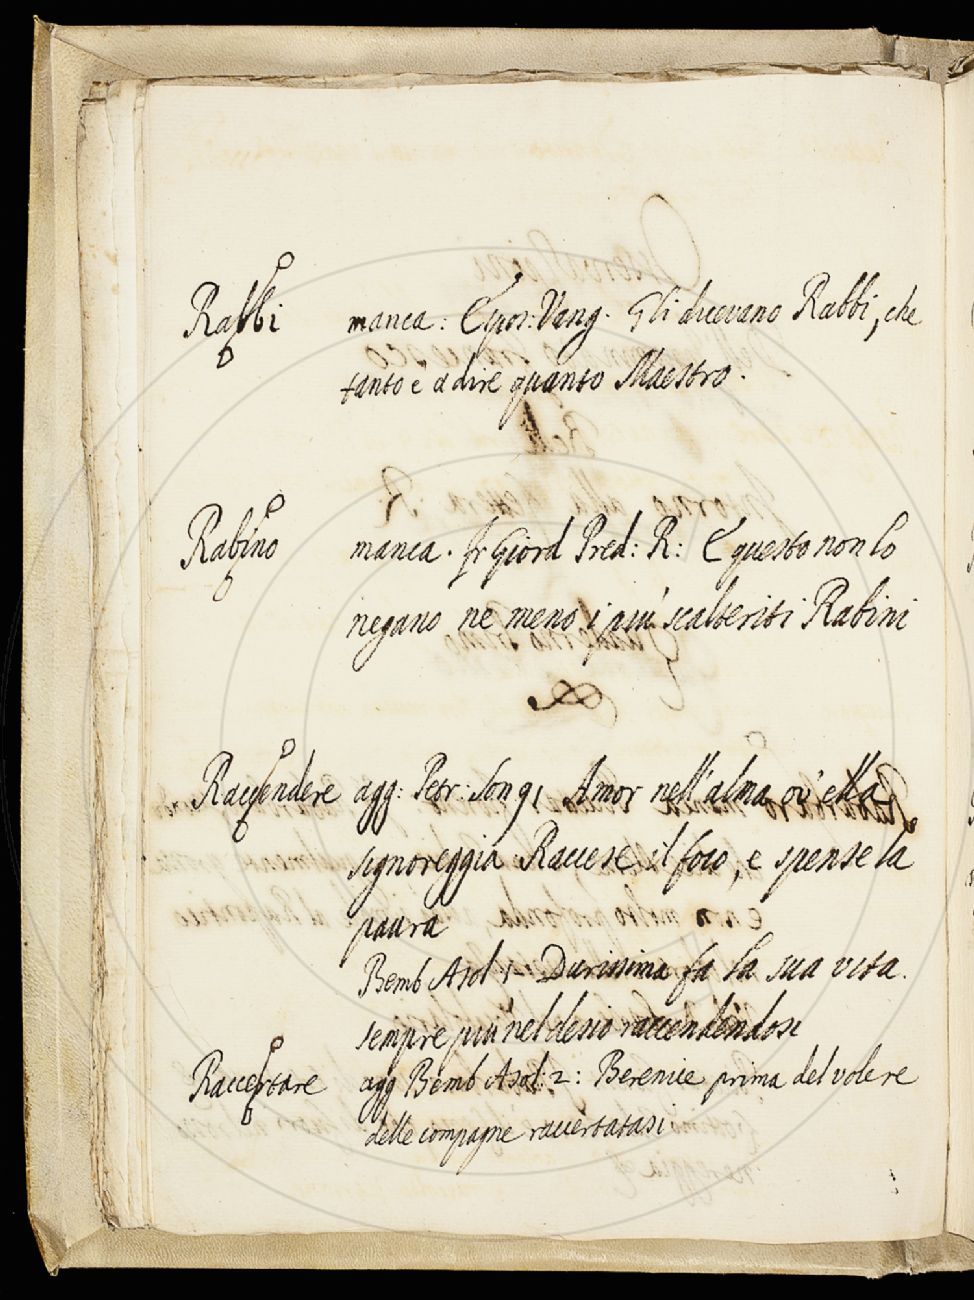 Rabbi manca: Espos: Vang. Gli dicevano Rabbi, che
tanto è a dire quanto Maestro.
Rabino manca. fr Giord Pred: R: E questo non lo
negano ne meno i più scalteriti Rabini
Raccendere agg: Petr: Son 91 Amor nell'alma, ov' ella
signoreggia Raccese il foco, e spense la
paura
Bemb Asol 1- Durissima fa la sua vita.
sempre più nel desio raccendendosi
Raccertare agg Bemb Asol: 2: Berenice prima del volere
delle compagne raccertatasi